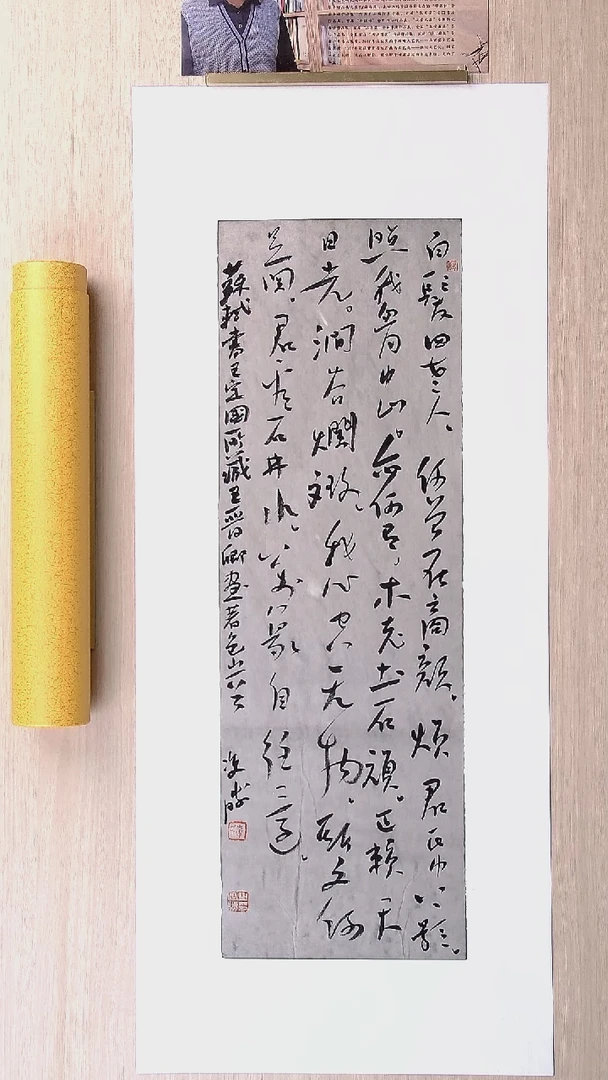 白髮四老人。何曾在商顏。煩君紙上影。
照我胸中山。亦何有，木老土石頑。正賴天
日光。澗谷爛斑。我心空无物。斯文何
足関。君看古井水。萬象自往還。
蘇軾書王定國所藏王晉卿畫著色山二首